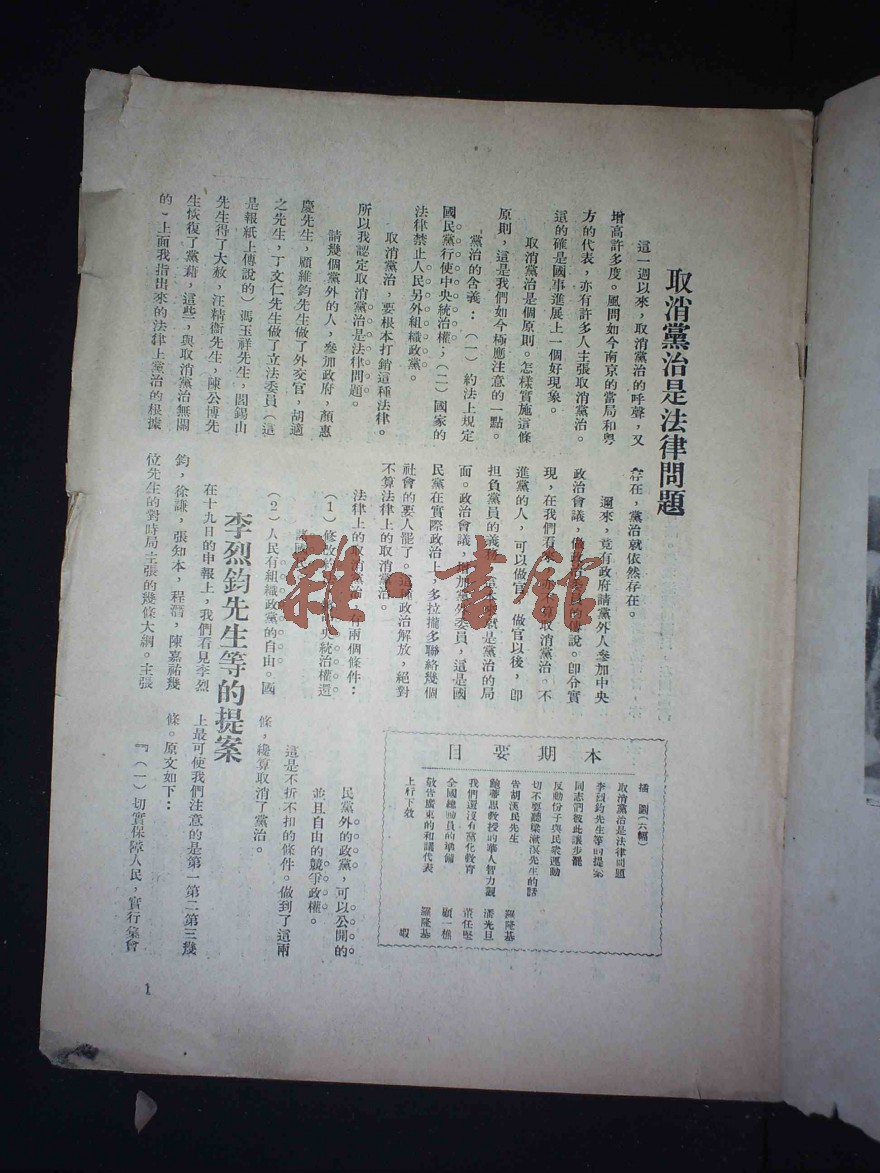 取消黨治是法律問題
這一週以來，取消黨治的呼聲，又
增高許多度。風聞如今南京的當局和粵
方的代表，亦有許多人主張取消黨治。
這的確是國事進展上一個好現象。
取消黨治是個原則。怎樣實施這條
原則，這是我們如今極應注意的一點。
黨治的含義：（一）約法上規定
國民黨行使中央統治權；（二）國家的
法律禁止人民另外組織政黨。
取消黨治，要根本打銷這種法律。
所以我認定取消黨治是法律問題。
請幾個黨外的人，參加政府，顏惠
慶先生，顧維鈞先生做了外交官，胡適
之先生，丁文仁先生做了立法委員（這
是報紙上傳說的）馮玉祥先生，閻錫山
先生得了大赦，汪精衞先生，陳公博先
生恢復了黨藉，這些，與取消黨治無關
的，上面我指出來的法律上黨治的根據
存在，黨治就依然存在。
邇來，竟有政府請黨外人參加中央
政治會議，做政 委員的 說。卽令實
現，在我們看來， 算取消黨治。不
進黨的人，可以做官，做官以後，卽
担負黨員的義務，這本來就是黨治的局
面。政治會議， 加黨外委員，這是國
民黨在實際政治上，多拉攏多聯絡幾個
社會的要人罷了。這種政治解放，絕對
不算法律上的取消黨治。
法律上的取消黨治，有兩個條件：
（1）修改約 央統治權還
諸國
（2）人民有組織政黨的自由。國
民黨外的政黨，可以公開的
並且自由的競爭政權。
這是不折不扣的條件。做到了這兩
條，纔算取消了黨治。
李烈鈞先生等的提案
在十九日的申報上，我們看見李烈
鈞，徐謙，張知本，程潛，陳嘉祐幾
位先生的對時局主張的幾條大綱。主張
上最可使我們注意的是第一第二第三幾
條。原文如下：
『（一）切實保障人民，實行集會
本期要目
插圖（六幅）
取消黨治是法律問題
李烈鈞先生等的提案
同志們彼此讓步罷
反動份子與民衆運動
切不要聽梁漱溟先生的話
告胡漢民先生 羅隆基
鮑蒂恩教授的華人智力觀 潘光旦
我們還沒有黨化教育 董任堅
全國總動員的準備 顧一樵
敬告廣東的和議代表 羅隆基
上行下效 蝦
1
雜·書館